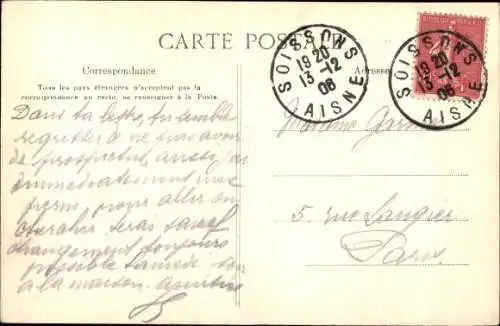 CARTE POSTALE
Correspondance
Adresse
Tous les pays étrangers n'acceptent pas la
correspondance au recto, se renseigner à la Poste
SOISSONS
19 20
13-12
06
AISNE
SOISSONS
19 20
13-12
06
AISNE
Dans ta lettre, tu semble
regretter de ne pas avoir
de prospectus, aussi
immédiatement
permis, pour aller en
chercher sera sauf
changement toujours
possible Samedi
à la maison.
Madame Garnier
5, rue Laugier
Paris